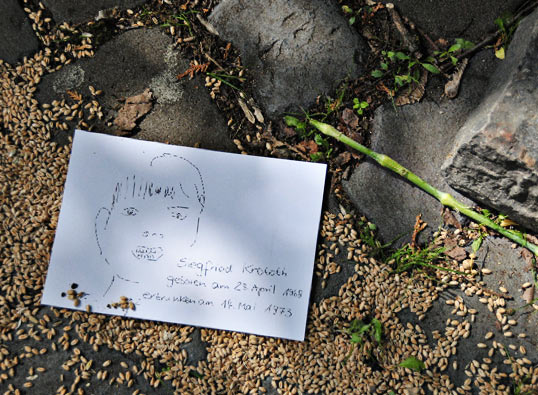 Siegfried Kroboth
geboren am 23. April 1968
ertrunken am 14. Mai 1973